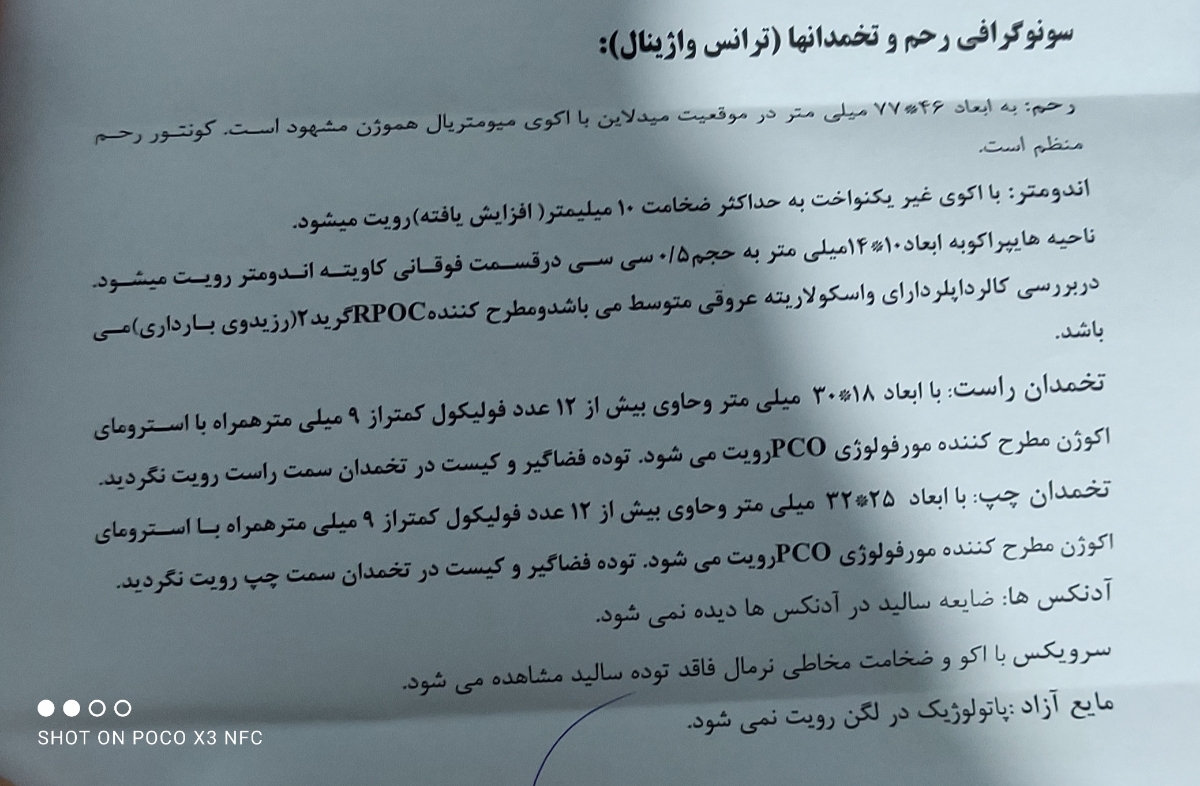 سونوگرافی رحم و تخمدانها (ترانس واژینال):
رحم: به ابعاد ۴۶*۷۷ میلی متر در موقعیت میدلاین با اکوی میومتریال هموژن مشهود است. کونتور رحم
منظم است.
اندومتر: با اکوی غیر یکنواخت به حداکثر ضخامت ۱۰ میلیمتر( افزایش یافته)رویت میشود.
ناحیه هایپراکوبه ابعاد۱۰*۱۴میلی متر به حجم۰/۵ سی سی درقسمت فوقانی کاویته اندومتر رویت میشود.
دربررسی کالرداپلردارای واسکولاریته عروقی متوسط می باشدومطرح کنندهRPOCگرید۲(رزیدوی بارداری)می
باشد.
تخمدان راست: با ابعاد ۱۸*۳۰ میلی متر وحاوی بیش از ۱۲ عدد فولیکول کمتراز ۹ میلی مترهمراه با استرومای
اکوژن مطرح کننده مورفولوژی PCOرویت می شود. توده فضاگیر و کیست در تخمدان سمت راست رویت نگردید.
تخمدان چپ: با ابعاد ۲۵*۳۲ میلی متر وحاوی بیش از ۱۲ عدد فولیکول کمتراز ۹ میلی مترهمراه با استرومای
اکوژن مطرح کننده مورفولوژی PCOرویت می شود. توده فضاگیر و کیست در تخمدان سمت چپ رویت نگردید.
آدنکس ها: ضایعه سالید در آدنکس ها دیده نمی شود.
سرویکس با اکو و ضخامت مخاطی نرمال فاقد توده سالید مشاهده می شود.
مایع آزاد :پاتولوژیک در لگن رویت نمی شود.
SHOT ON POCO X3 NFC